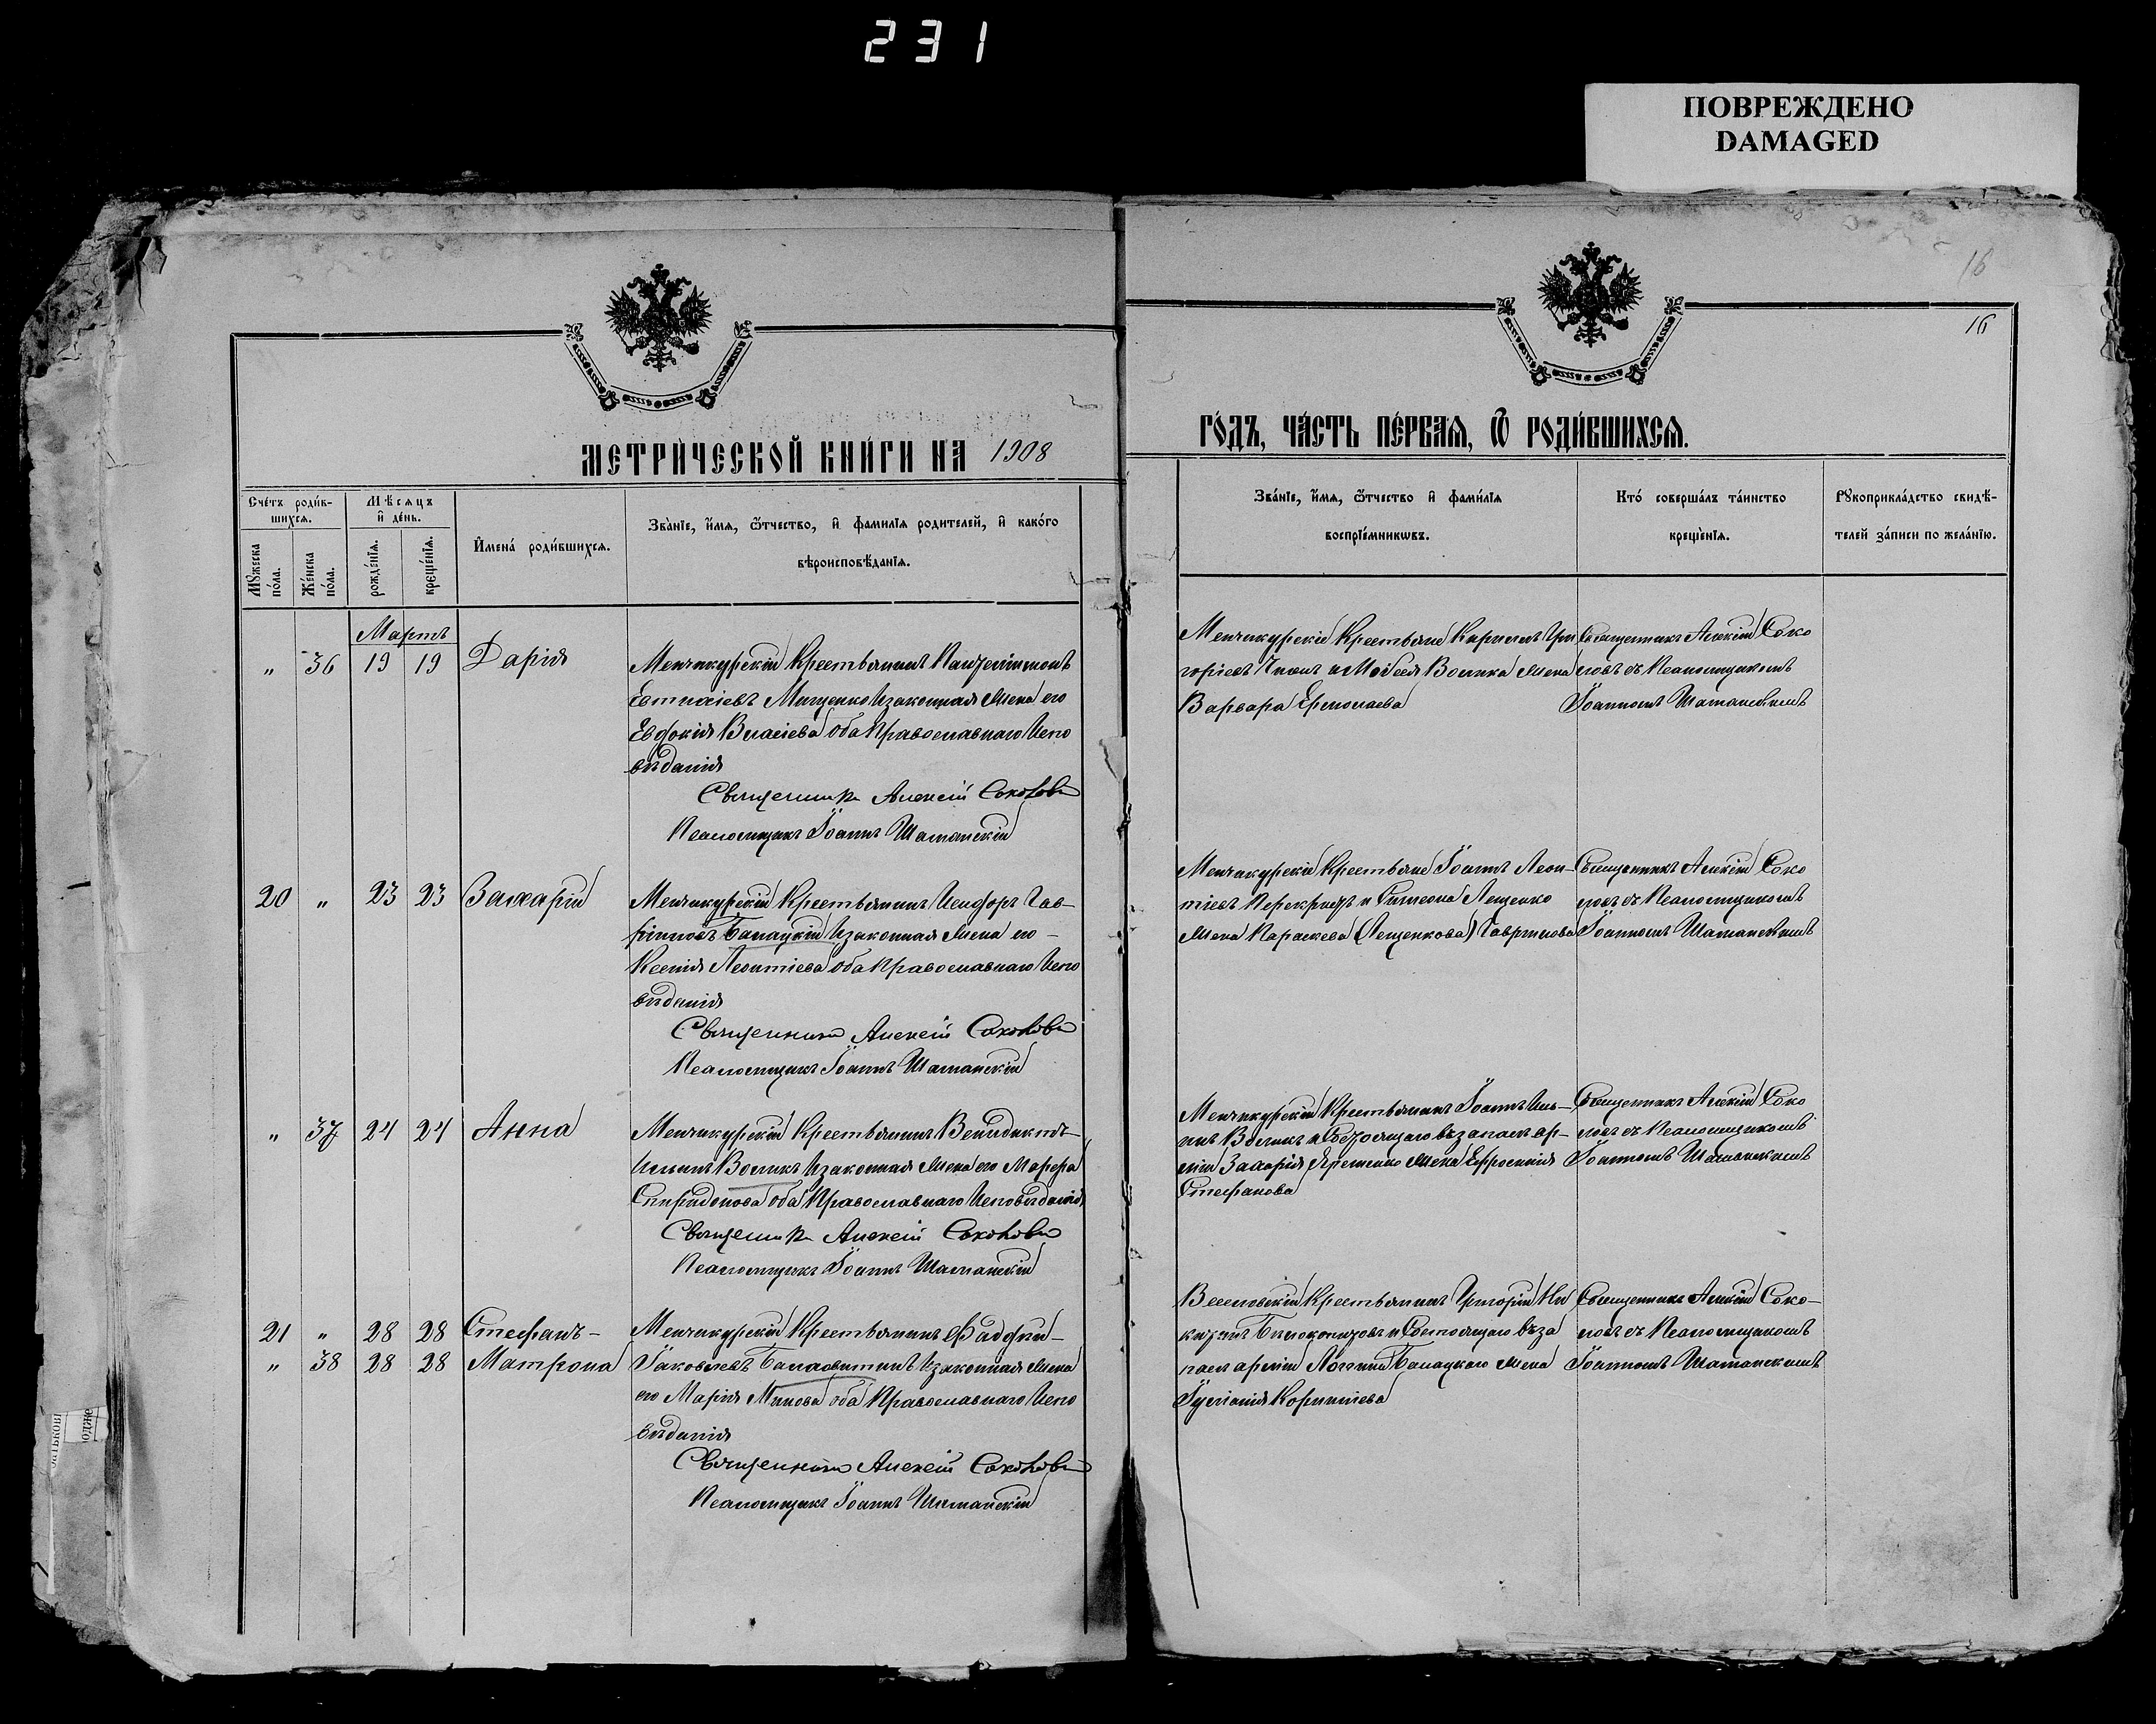 231
ПОВРЕЖДЕНО
DAMAGED
16
16
МЕТРИ́ЧЕСКОЙ КНИ́ГИ НА 1908
ГО́ДЪ, ЧА́СТЬ ПЕ́РВАѦ, Ѡ҆ РОДИ́ВШИХСѦ.
Сче́тъ роди́в-
шихсѧ.
Мꙋ́жеска
по́ла.
Же́нска
по́ла.
Мѣ́сѧцъ
и҆ де́нь.
рожде́нїѧ.
креще́нїѧ.
И҆мена́ роди́вшихсѧ.
Зва́нїе, и҆́мѧ, ѻ҆́тчество, и҆ фамилїѧ родителей, и҆ како́го
вѣроисповѣ́данїѧ.
Зва́нїе, и҆́мѧ, ѻ҆́тчество и҆ фами́лїѧ
воспрїе́мникѡвъ.
Кто́ соверша́лъ та́инство
креще́нїѧ.
Рꙋкоприкла́дство свидѣ́-
телей за́писи по жела́нїю.
Мартъ
„ 36 19 19 Дарія
Менчикурскій Крестьянинъ Пантелиимонъ
Евтихіевъ Мищенко И законная Жена его
Евдокія Власіева оба Православнаго Испо
вѣданія
Священникъ Алексій Соколовъ
Псаломщикъ Іоаннъ Шатанскій
Менчикурскіе Крестьяне Кириллъ Гри
горіевъ и Моисея Волика Жена
Варвара Ермолаева
Священникъ Алексій Соко
ловъ съ Псаломщикомъ
Іоанномъ Шатанскимъ
20 „ 23 23 Захарій
Менчикурскій Крестьянинъ Исидоръ Гав-
рииловъ Балацкій И законная Жена его-
Ксенія Леонтіева оба Православнаго Испо
вѣданія
Священникъ Алексій Соколовъ
Псаломщикъ Іоаннъ Шатанскій
Менчикурскіе Крестьяне Іоаннъ Леон-
тіевъ и Симеона Лещенко
Жена Параскева (Лещенкова) Гаврилова
Священникъ Алексій Соко
ловъ съ Псаломщикомъ
Іоанномъ Шатанскимъ
„ 37 24 24 Анна
Менчикурскій Крестьянинъ Венидиктъ-
Ильинъ Воликъ И законная Жена его Марфа
Спиридонова оба Православнаго Исповѣданія
Священникъ Алексій Соколовъ
Псаломщикъ Іоаннъ Шатанскій
Менчикурскій Крестьянинъ Іоаннъ Иль-
инъ Воликъ и Состоящаго въ запасѣ ар-
міи Захарія Яременко Жена Ефросинія
Стефанова
Священникъ Алексій Соко
ловъ съ Псаломщикомъ
Іоанномъ Шатанскимъ
21 „ 28 28 Стефанъ-
„ 38 28 28 Матрона
Менчикурскій Крестьянинъ Фаддей-
Іаковлевъ И законная Жена
его Марія Минова оба Православнаго Испо
вѣданія
Священникъ Алексій Соколовъ
Псаломщикъ Іоаннъ Шатанскій
Веселовскій Крестьянинъ Григорій Ни
китинъ Бѣлоконовъ и Состоящаго въ за
пасѣ арміи Логгина Балацкаго Жена
Іуліанія Корниліева
Священникъ Алексій Соко-
ловъ съ Псаломщикомъ
Іоанномъ Шатанскимъ